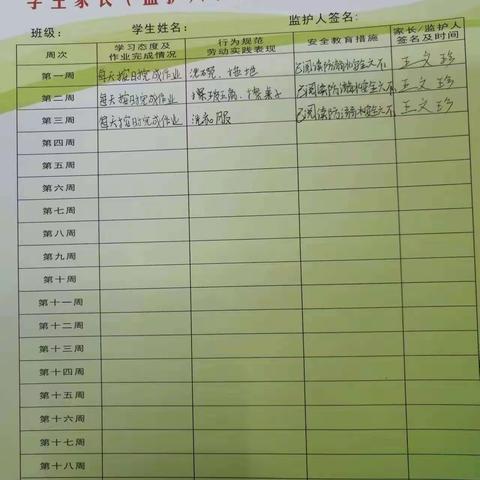 学生家长（监护人
班级： 学生姓名： 监护人签名：
周次 学习态度及作业完成情况 行为规范劳动实践表现 安全教育措施 家长/监护人签名及时间
第一周 每天按时完成作业 洗碗、拖地 已阅读防溺水安全六不 王文珍
第二周 每天按时完成作业 擦玻璃、擦桌子 已阅读防溺水安全六不 王文珍
第三周 每天按时完成作业 洗衣服 已阅读防溺水安全六不 王文珍
第四周
第五周
第六周
第七周
第八周
第九周
第十周
第十一周
第十二周
第十三周
第十四周
第十五周
第十六周
第十七周
第十八周